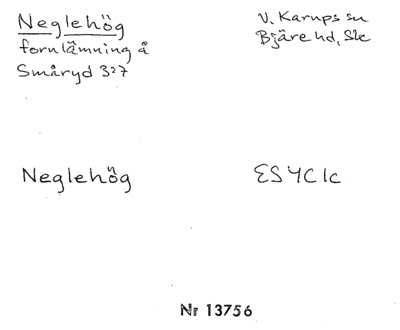 Neglehög
fornlämning å
Småryd 3:7
V. Karups sn
Bjäre hd, Sk
Neglehög
ES4C1c
Nr 13756